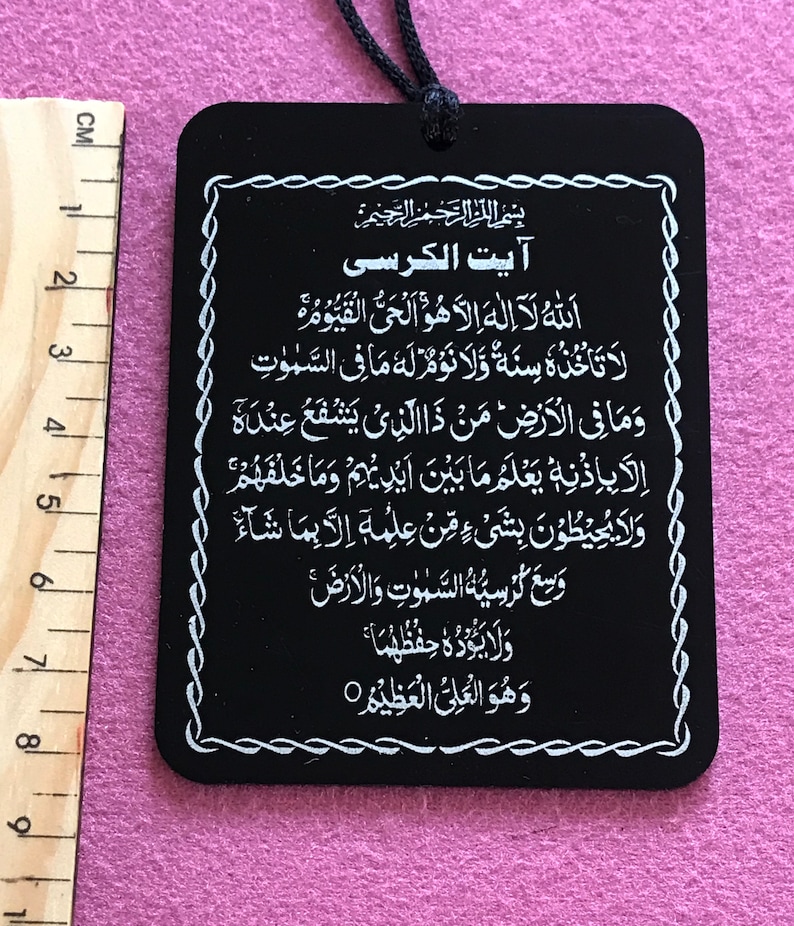 بِسْمِ اللّٰهِ الرَّحْمٰنِ الرَّحِیْمِ
آیت الکرسی
اَللّٰهُ لَاۤ اِلٰهَ اِلَّا هُوَۚ اَلْحَیُّ الْقَیُّوْمُ ۚ
لَا تَاْخُذُهٗ سِنَةٌ وَّلَا نَوْمٌ ؕ لَهٗ مَا فِی السَّمٰوٰتِ
وَمَا فِی الْاَرْضِ ؕ مَنْ ذَا الَّذِیْ یَشْفَعُ عِنْدَهٗۤ
اِلَّا بِاِذْنِهٖ ؕ یَعْلَمُ مَا بَیْنَ اَیْدِیْهِمْ وَمَا خَلْفَهُمْ ۚ
وَلَا یُحِیْطُوْنَ بِشَیْءٍ مِّنْ عِلْمِهٖۤ اِلَّا بِمَا شَآءَ ۚ
وَسِعَ كُرْسِیُّهُ السَّمٰوٰتِ وَالْاَرْضَ ۚ
وَلَا یَـُٔوْدُهٗ حِفْظُهُمَا ۚ
وَهُوَ الْعَلِیُّ الْعَظِیْمُ ○
CM
1
2
3
4
5
6
7
8
9
1